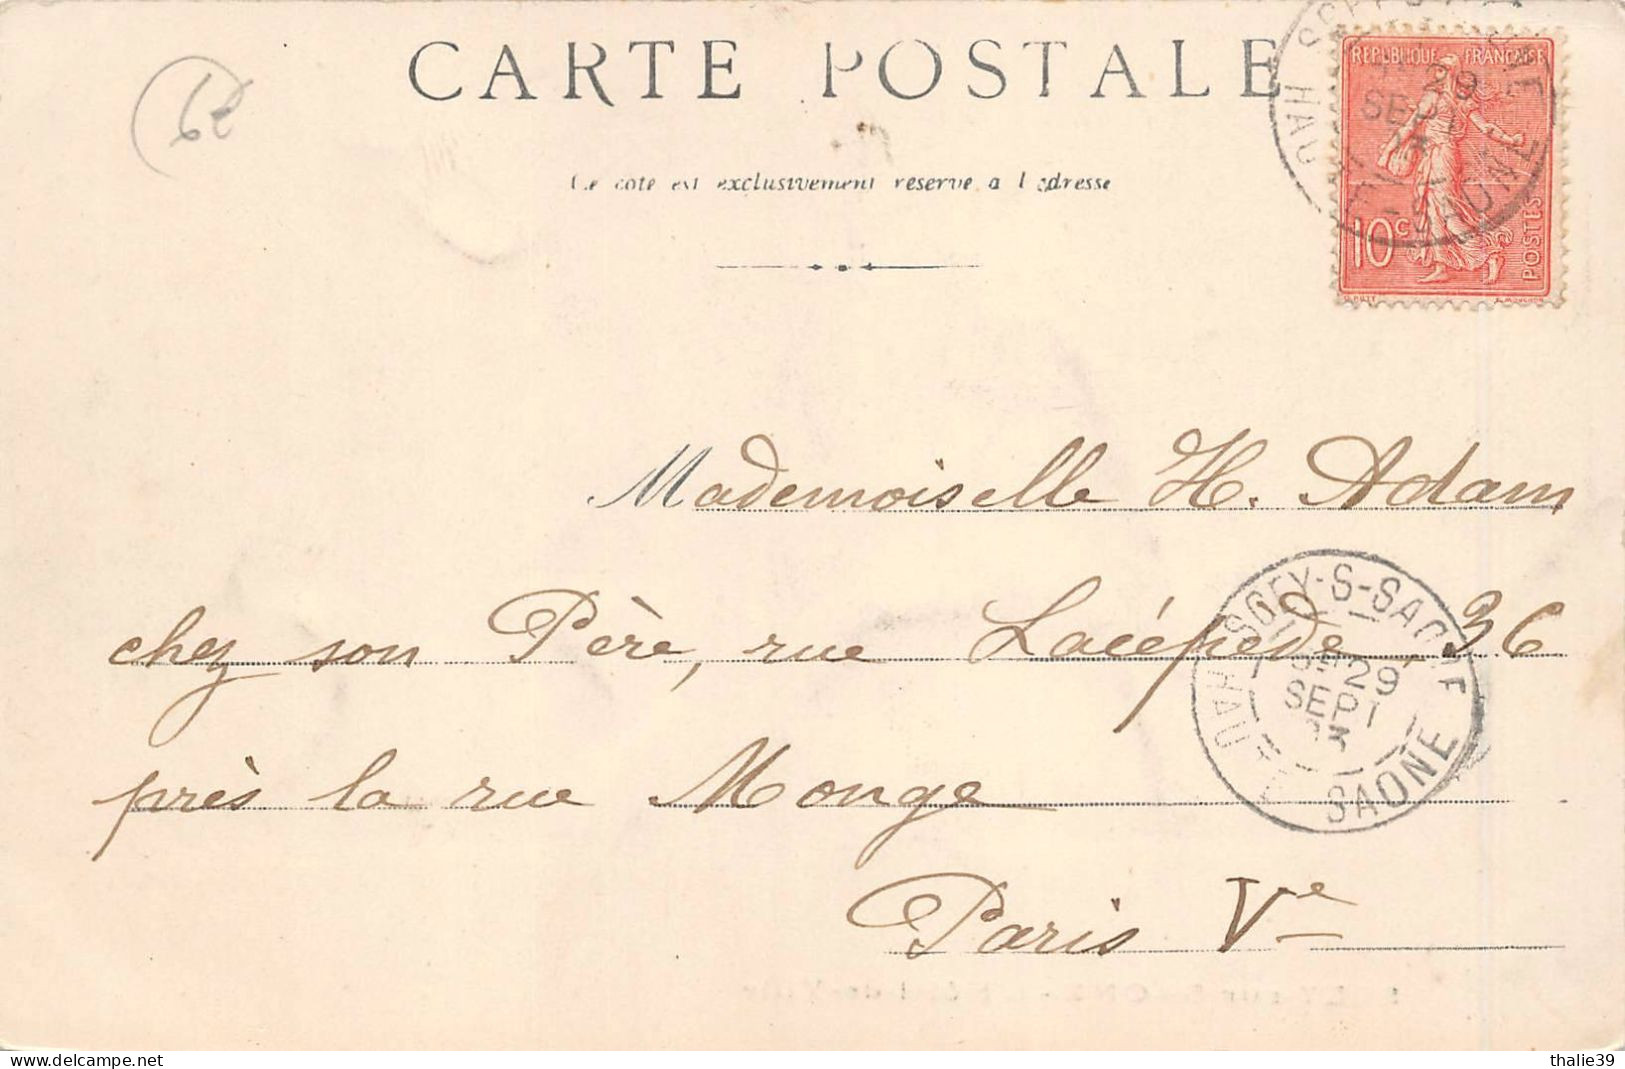 CARTE POSTALE
Ce côté est exclusivement réservé à l'adresse
REPUBLIQUE FRANÇAISE
10c
POSTES
O. ROTY
E. MOUCHON
29
SEPT
SAONE
62
Mademoiselle H. Adam
chez son Père, rue Lacépède, 36
près la rue Monge
Paris Ve
SCEY-S-SAONE
29
SEPT
03
HAUTE SAONE
thalie39